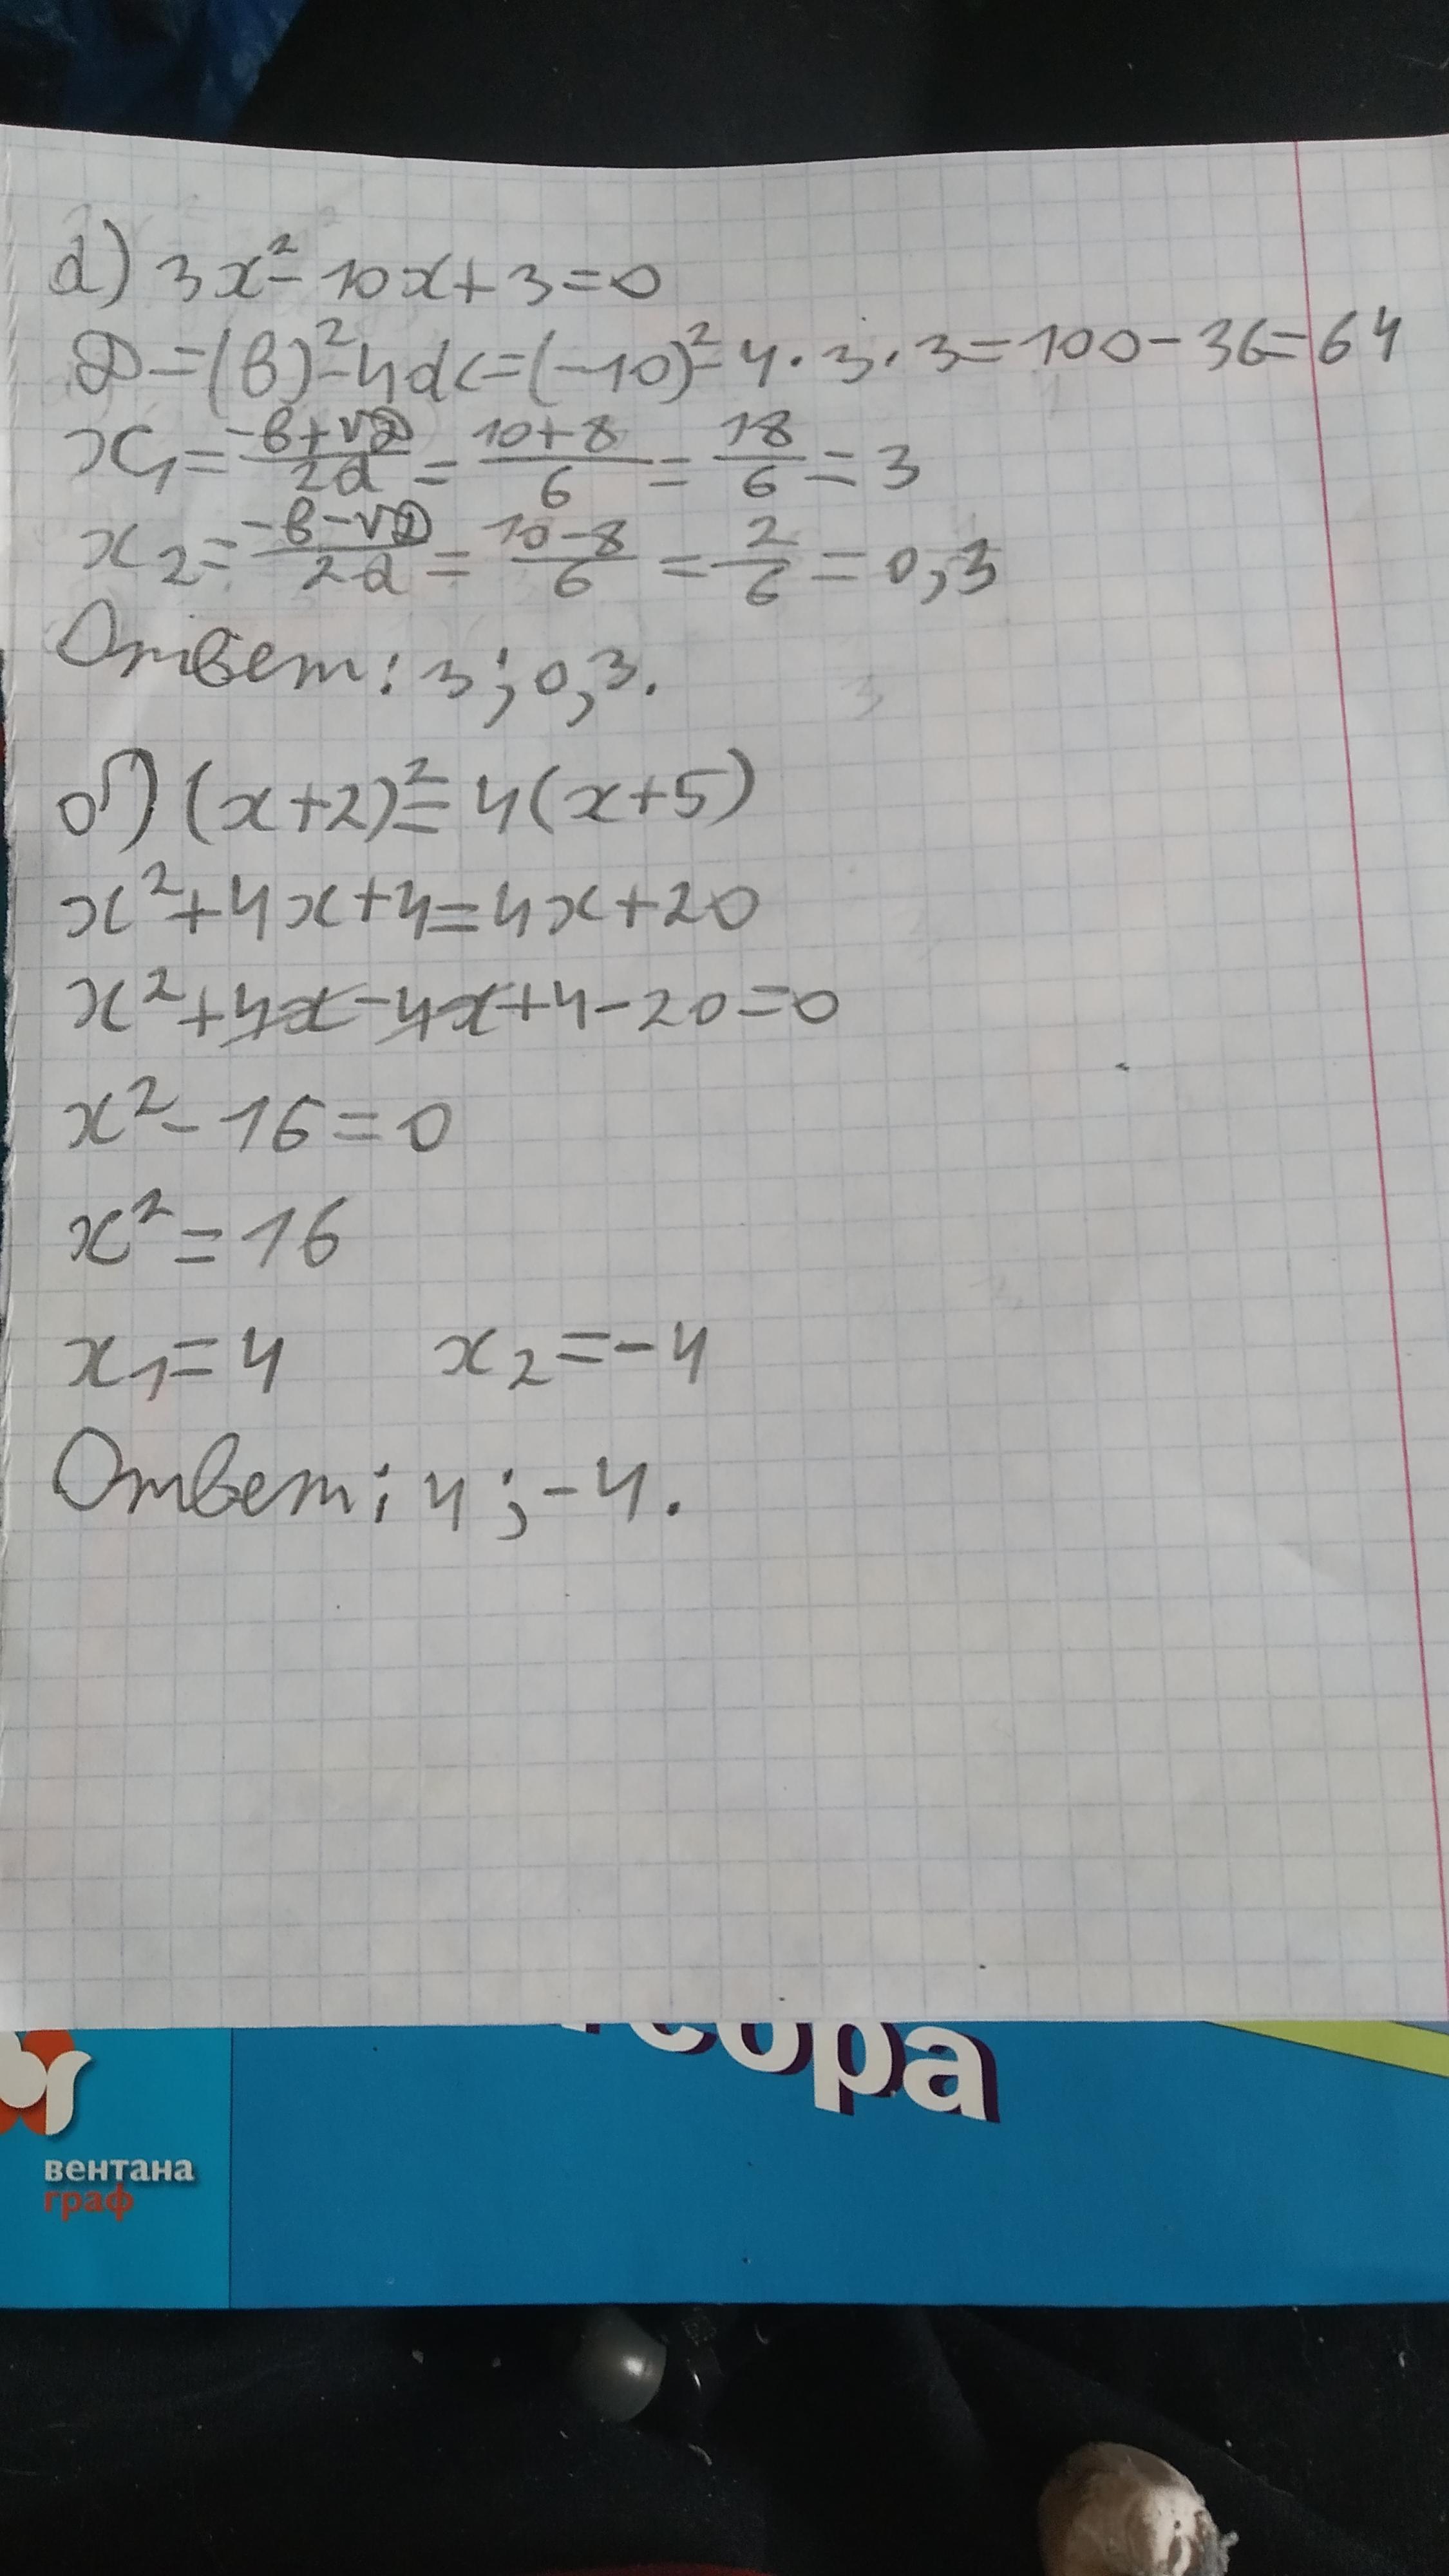 а) 3x² - 10x + 3 = 0
D = (b)² - 4ac = (-10)² - 4 · 3 · 3 = 100 - 36 = 64
x₁ = (-b + √D)/(2a) = (10 + 8)/6 = 18/6 = 3
x₂ = (-b - √D)/(2a) = (10 - 8)/6 = 2/6 = 0,3
Ответ: 3; 0,3.
б) (x + 2)² = 4(x + 5)
x² + 4x + 4 = 4x + 20
x² + 4x - 4x + 4 - 20 = 0
x² - 16 = 0
x² = 16
x₁ = 4 x₂ = -4
Ответ: 4; -4.
вентана
граф